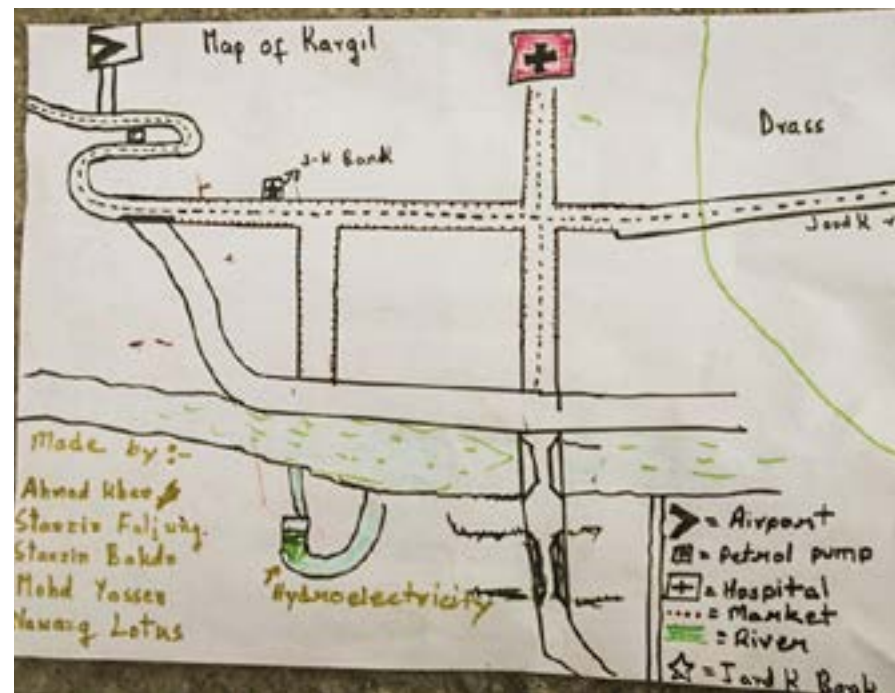 Map of Kargil
Drass
J-K Bank
J and K
Made by :-
Ahmad Khan
Stanzin Faljung.
Stanzin
Mohd Yassen
Nawang Lotus
Hydroelectricity
= Airport
= Petrol pump
= Hospital
= Market
= River
= J and K Bank